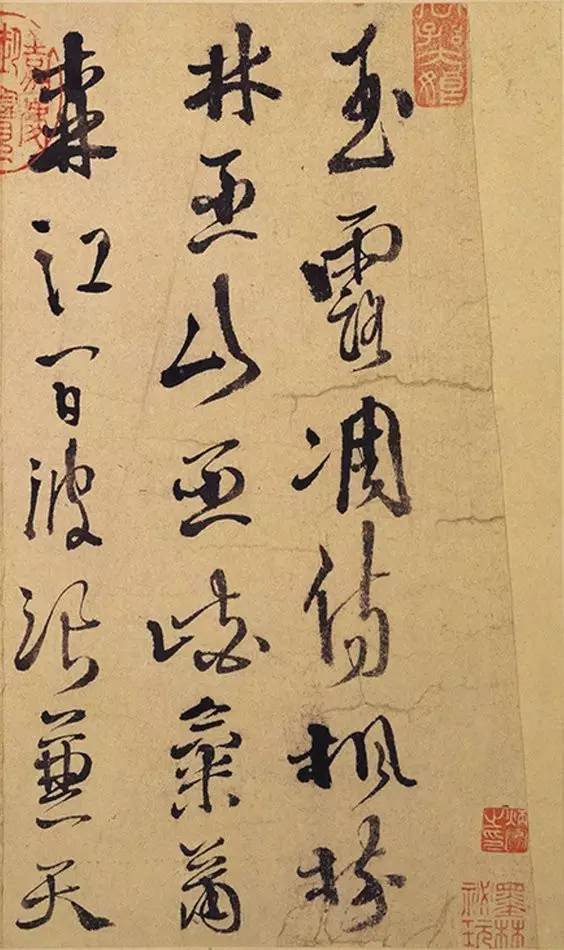 玉露凋傷楓樹
林巫山巫峽氣蕭
森江間波浪兼天
墨林祕玩